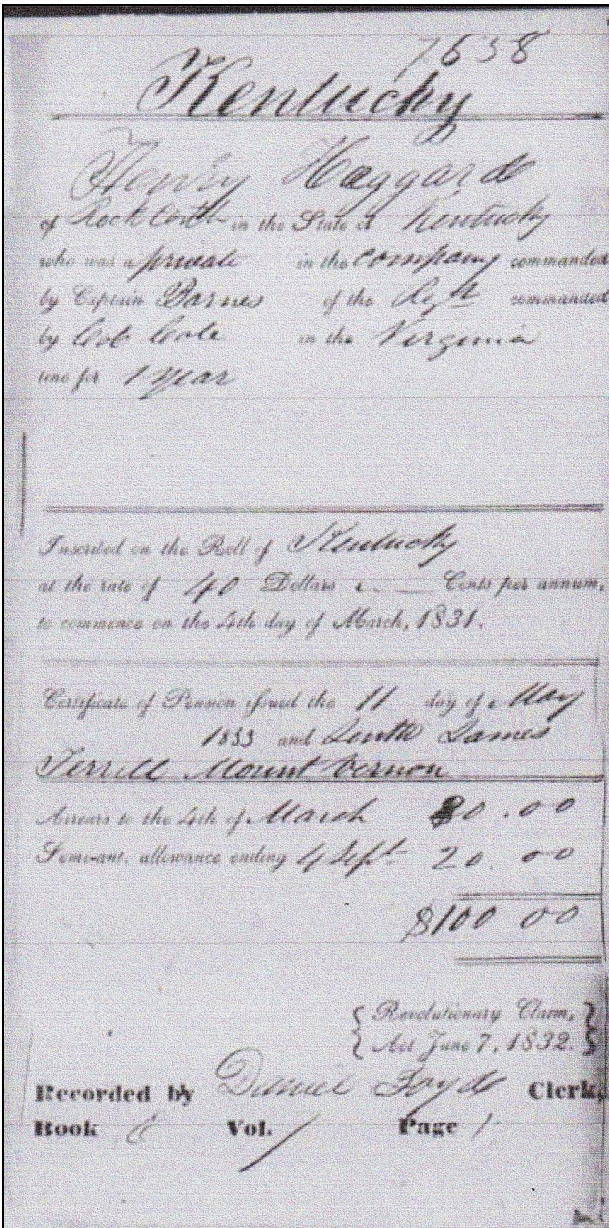 7638
Kentucky
Henry Haggard
of Rock Castle in the State of Kentucky
who was a private in the company commanded
by Captain Barnes of the Regt commanded
by Col. Cole in the Virginia
line for 1 year
Inscribed on the Roll of Kentucky
at the rate of 40 Dollars — Cents per annum,
to commence on the 4th day of March, 1831.
Certificate of Pension issued the 11 day of May
1833 and James
Terrill Mount Vernon
Arrears to the 4th of March 80.00
Semi-ant. allowance ending 4 Sept 20.00
$100 00
{ Revolutionary Claim, }
{ Act June 7, 1832. }
Recorded by Daniel Boyd Clerk,
Book E Vol. 1 Page 1